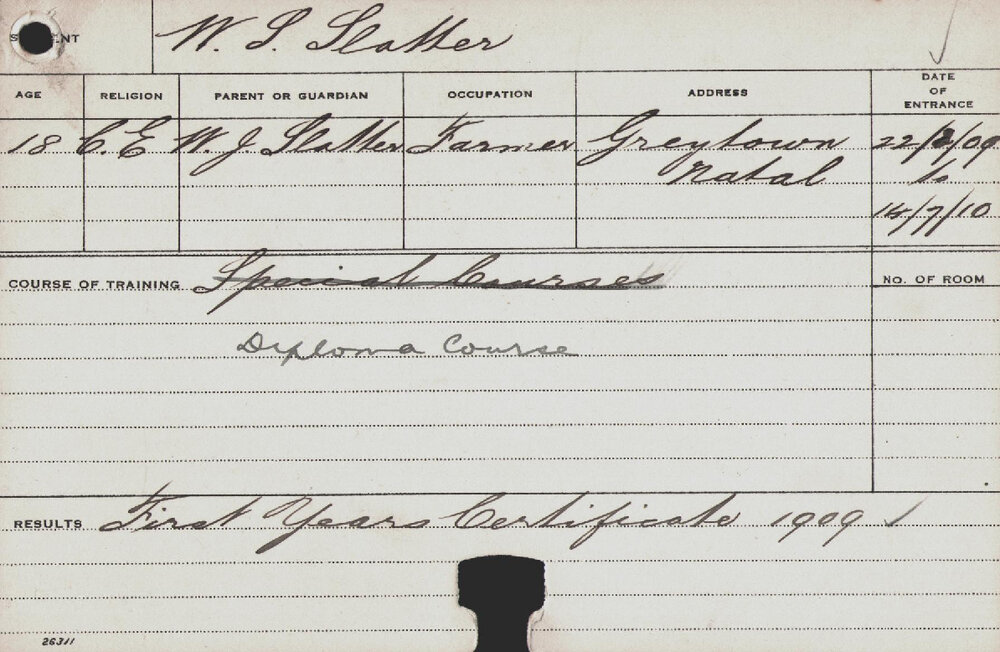 STUDENT W. S. Slatter
AGE RELIGION PARENT OR GUARDIAN OCCUPATION ADDRESS DATE OF ENTRANCE
18 C. E W. J. Slatter Farmer Greytown 22/2/09
Natal to
14/7/10
COURSE OF TRAINING Special Courses NO. OF ROOM
Diploma Course
RESULTS First Years Certificate 1909 ✓
26311